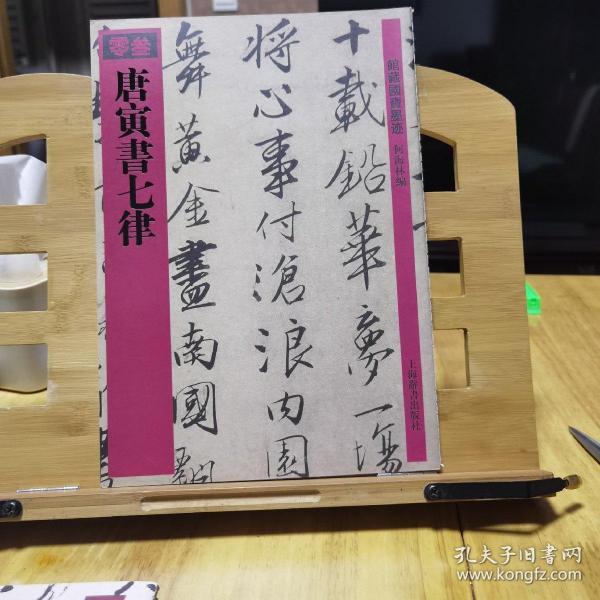 零叁
唐寅書七律
十載鉛華夢一場
將心事付滄浪内園
舞黃金盡南國飄
館藏國寶墨迹
何海林编
上海辭書出版社
孔夫子旧書网
www.kongfz.com